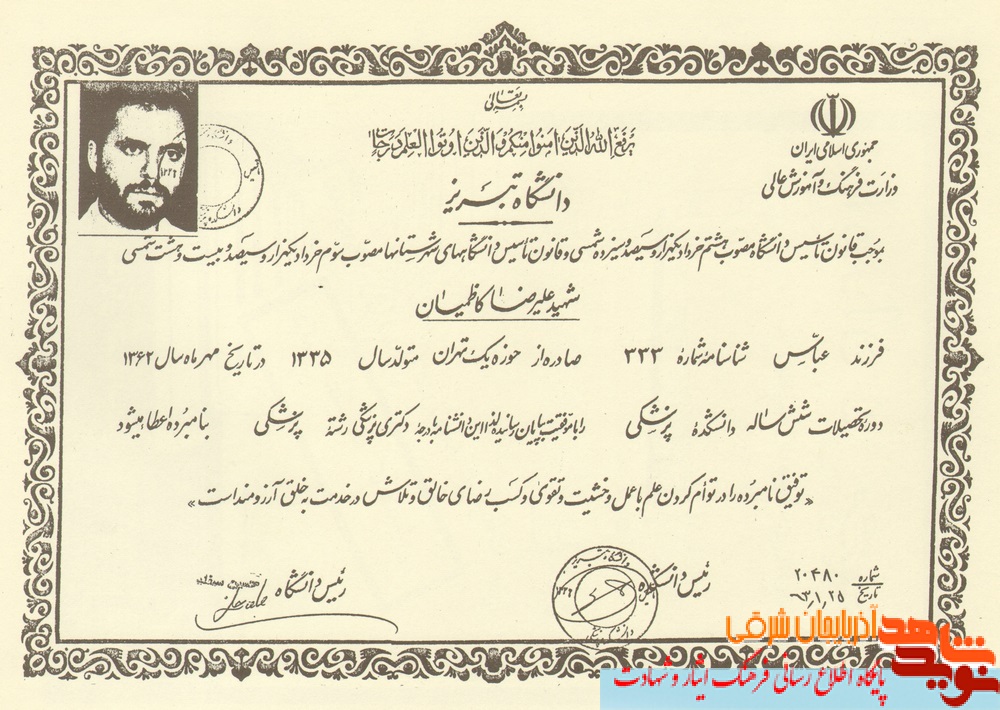 بسمه تعالی
یرفع الله الذین امنوا منکم والذین اوتوا العلم درجات
جمهوری اسلامی ایران
وزارت فرهنگ و آموزش عالی
دانشگاه تبریز
بموجب قانون تاسیس دانشگاه مصوب هشتم خرداد یکهزار و سیصد و سیزده شمسی و قانون تاسیس دانشگاههای شهرستانها مصوب سوم خرداد یکهزار و سیصد و بیست و هشت شمسی
شهید علیرضا کاظمیان
فرزند عباس شناسنامه شماره ۳۳۳ صادره از حوزه یک تهران متولد سال ۱۳۳۵ در تاریخ مهر ماه سال ۱۳۶۲
دوره تحصیلات شش ساله دانشکده پزشکی را با موفقیت بپایان رسانیده لذا این دانشنامه بدرجه دکتری پزشکی رشته پزشکی بنامبرده اعطا میشود
«توفیق نامبرده را در توأم کردن علم با عمل و خشیت و تقوی و کسب رضای خالق و تلاش در خدمت به خلق آرزومند است»
شماره ۲۰۴۸۰
تاریخ ۶۳/۱/۲۵
رئیس دانشکده
رئیس دانشگاه
نوید شاهد
آذربایجان شرقی
پایگاه اطلاع رسانی فرهنگ ایثار و شهادت